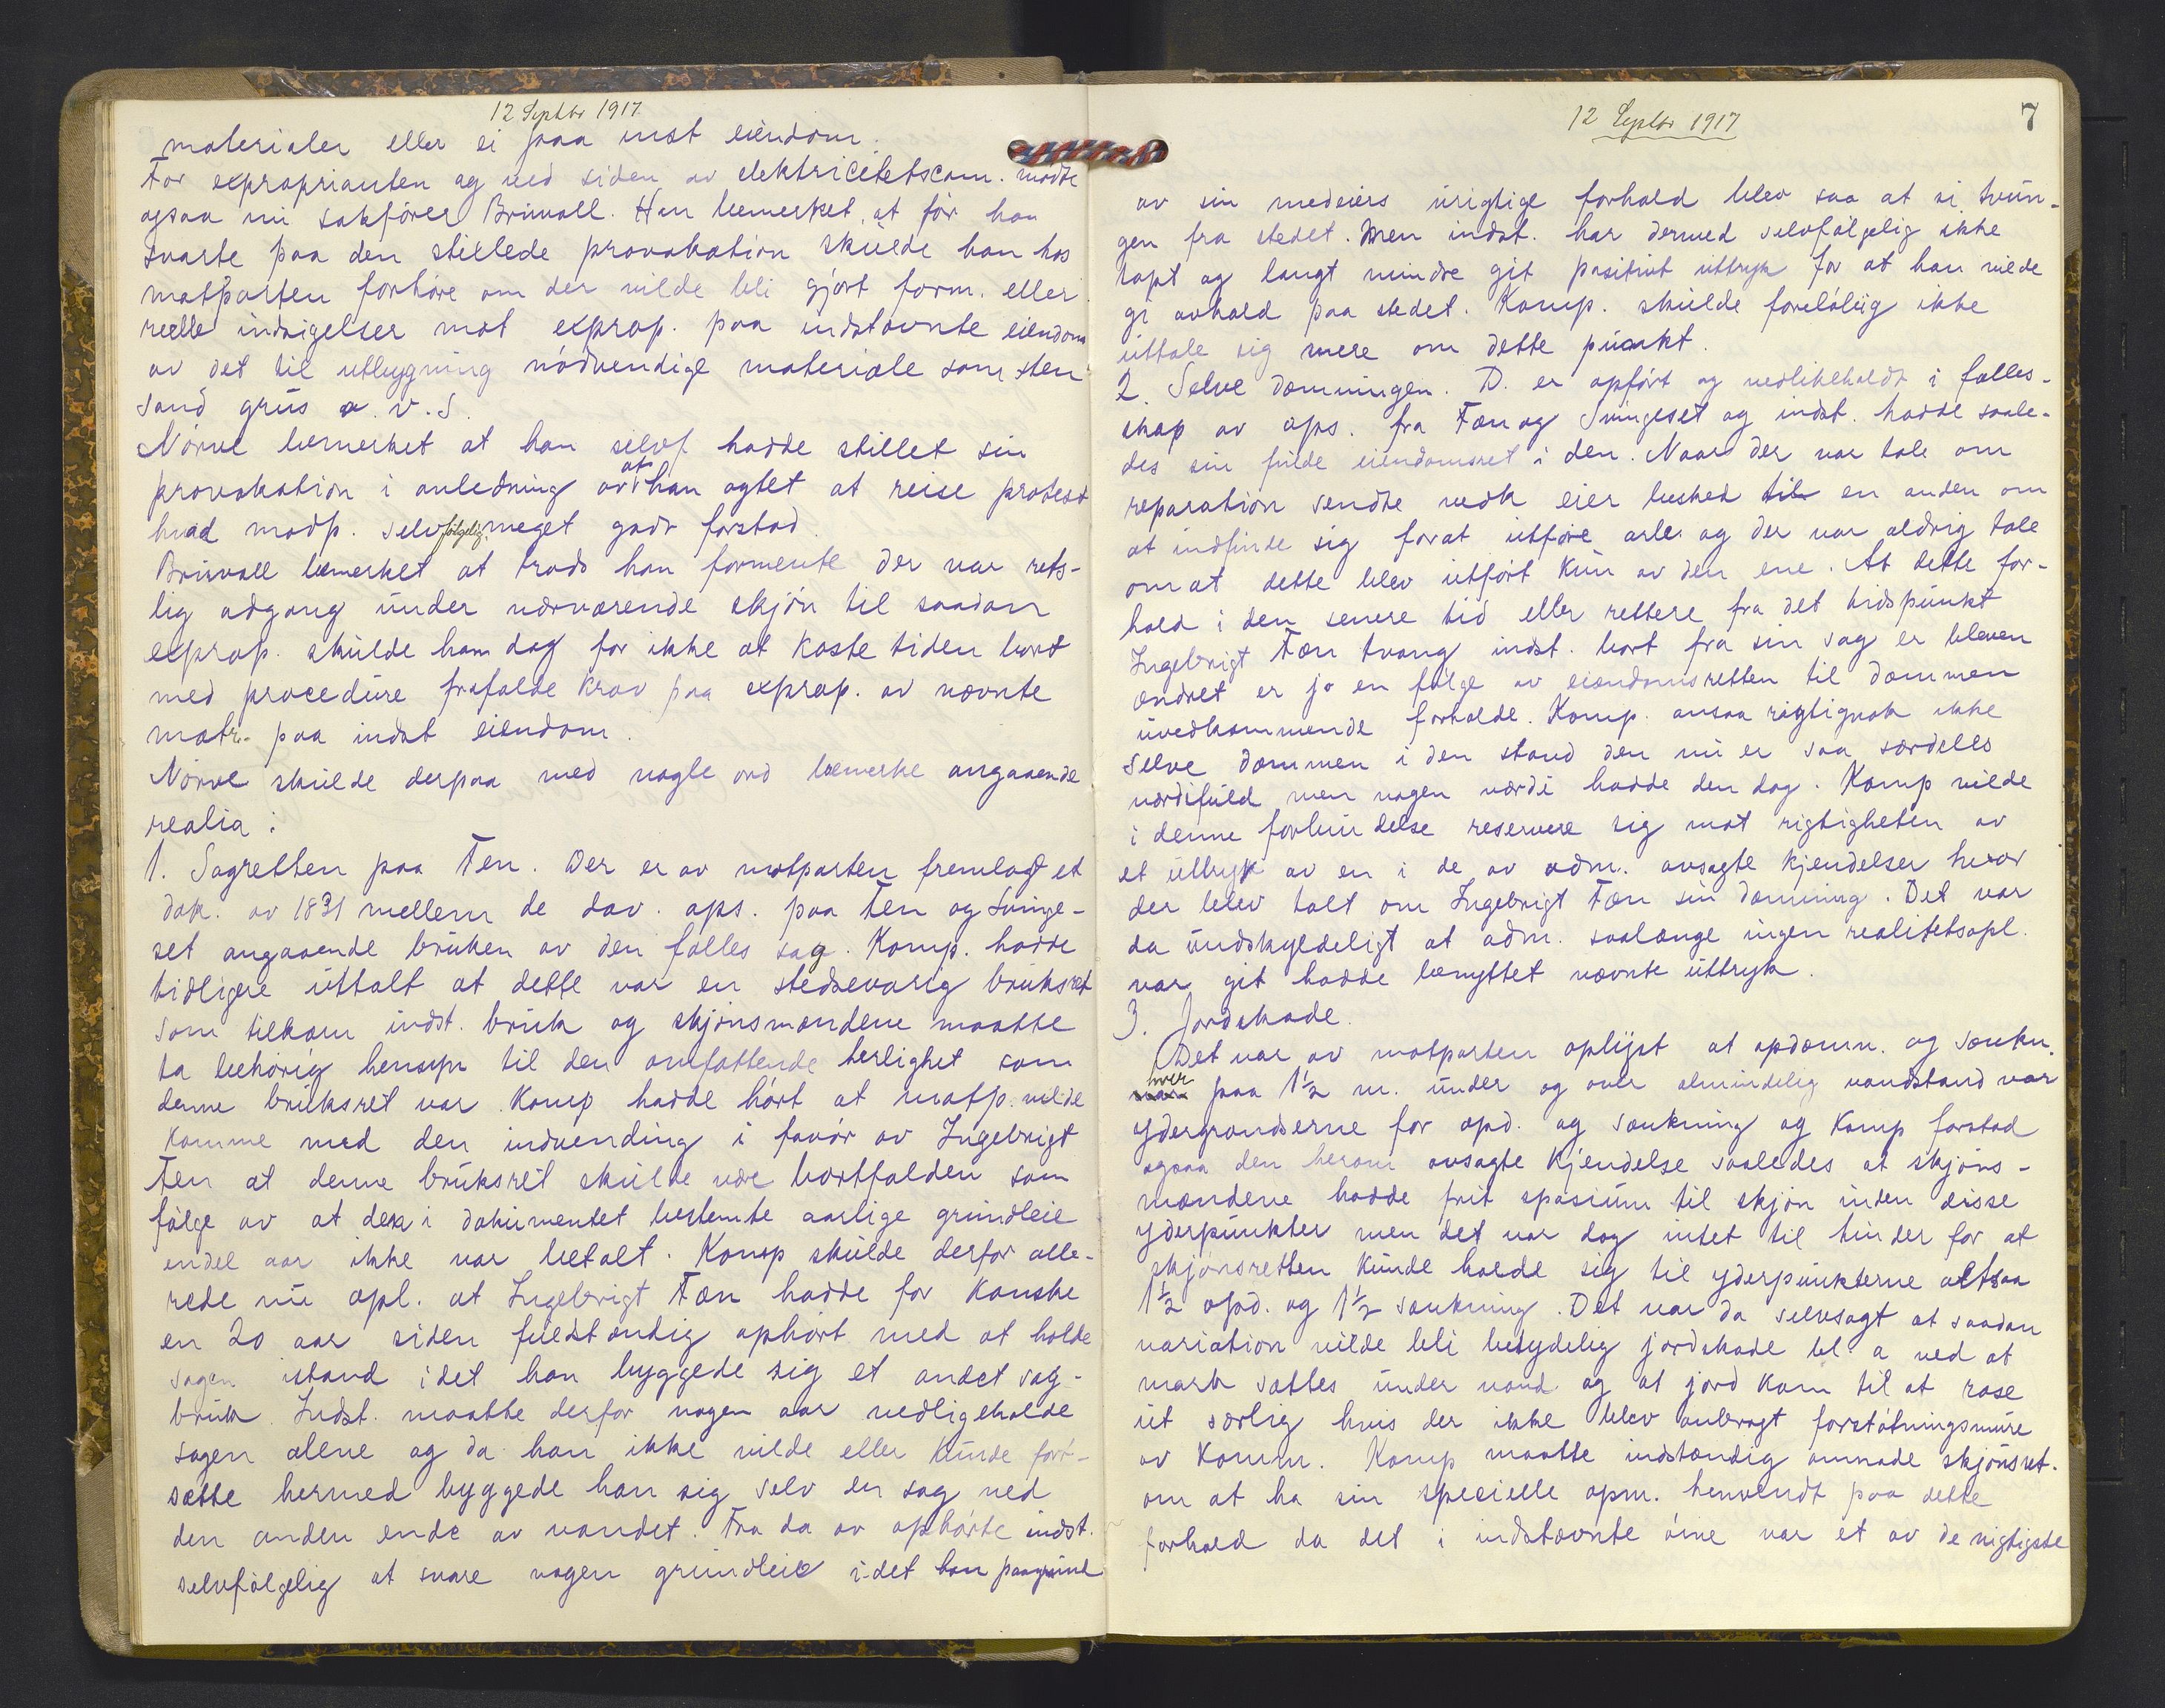 12 Septbr 1917
materialer eller ei paa inst eiendom.
For exproprianten og ved siden av elektricitetscom. mødte
ogsaa nu sakfører Brüvoll. Han bemerket, at før han
svarte paa den stillede provokation skulde han hos
motparten forhøre om der vilde bli gjort form. eller
reelle indsigelser mot exprop. paa indstevnte eiendom
av det til utbygning nødvendige materiale som sten
sand grus o. v. s.
Nørve bemerket at han selvf hadde stillet sin
provokation i anledning av at han agtet at reise protest
hvad modp. selvfølgelig meget godt forstod.
Brüvoll bemerket at trods han formente der var rets-
lig adgang under nærværende skjøn til saadan
exprop. skulde han dog for ikke at kaste tiden bort
med procedure frafalde krav paa exprop. av nævnte
matr. paa indst eiendom.
Nørve skulde derpaa med nogle ord bemerke angaaende
realia:
1. Sagretten paa Fen. Der er av motparten fremlagt et
dok. av 1831 mellem de dav. ops. paa Fen og Svinge-
set angaaende bruken av den fælles sag. Komp. hadde
tidligere uttalt at dette var en stedsevarig bruksret
som tilkom indst. bruk og skjønsmændene maatte
ta behørig hensyn til den omfattende herlighet som
denne bruksret var. Komp hadde hørt at motp. vilde
komme med den indvending i favør av Ingebrigt
Fen at denne bruksret skulde være bortfalden som
følge av at den i dokumentet bestemte aarlige grundleie
endel aar ikke var betalt. Komp skulde derfor alle-
rede nu opl. at Ingebrigt Fæn hadde for kanske
en 20 aar siden fuldstændig ophørt med at holde
sagen istand idet han byggede sig et andet sag-
bruk. Indst. maatte derfor nogen aar vedligeholde
sagen alene og da han ikke vilde eller kunde fort-
sætte hermed byggede han sig selv en sag ved
den anden ende av vandet. Fra da av ophørte indst.
selvfølgelig at svare nogen grundleie idet han paagrund
12 Septbr 1917
7
av sin medeiers urigtige forhold blev saa at si tvun-
gen fra stedet. Men indst. har dermed selvfølgelig ikke
tapt og langt mindre git positivt uttryk for at han vilde
gi avkald paa stedet. Komp. skulde foreløbig ikke
uttale sig mere om dette punkt.
2. Selve dæmningen. D. er opført og vedlikeholdt i fælles-
skap av ops. fra Fæn og Svingeset og indst. hadde saale-
des sin fulde eiendomsret i den. Naar der var tale om
reparation sendte vedk eier besked til en anden om
at indfinde sig forat utføre arb. og der var aldrig tale
om at dette blev utført kun av den ene. At dette for-
hold i den senere tid eller rettere fra det tidspunkt
Ingebrigt Fæn tvang indst. bort fra sin sag er bleven
ændret er jo en følge av eiendomsretten til dæmmen
uvedkommende forholde. Komp. ansaa rigtignok ikke
selve dæmmen i den stand den nu er saa særdeles
værdifuld men nogen værdi hadde den dog. Komp vilde
i denne forbindelse reservere sig mot rigtigheten av
et uttryk av en i de av adm. avsagte kjendelser hvor
der blev talt om Ingebrigt Fæn sin dæmning. Det var
da undskyldeligt at adm. saalænge ingen realitetsopl.
var git hadde benyttet nævnte uttryk.
3. Jordskade.
Det var av motparten oplyst at opdæmn. og sænkn.
hver paa 1½ m. under og over almindelig vandstand var
ydergrændserne for opd. og sænkning og Komp forstod
ogsaa den herom avsagte kjendelse saaledes at skjøns-
mændene hadde frit spasium til skjøn inden disse
yderpunkter men det var dog intet til hinder for at
skjønsretten kunde holde sig til yderpunkterne altsaa
1½ opd. og 1½ sænkning. Det var da selvsagt at saadan
variation vilde bli betydelig jordskade bl. a ved at
mark sættes under vand og at jord kom til at rase
ut særlig hvis der ikke blev anbragt forstøtningsmure
av komm. Komp maatte indstændig anmode skjønsret.
om at ha sin specielle opm. henvendt paa dette
forhold da det i indstævnte øine var et av de vigtigste